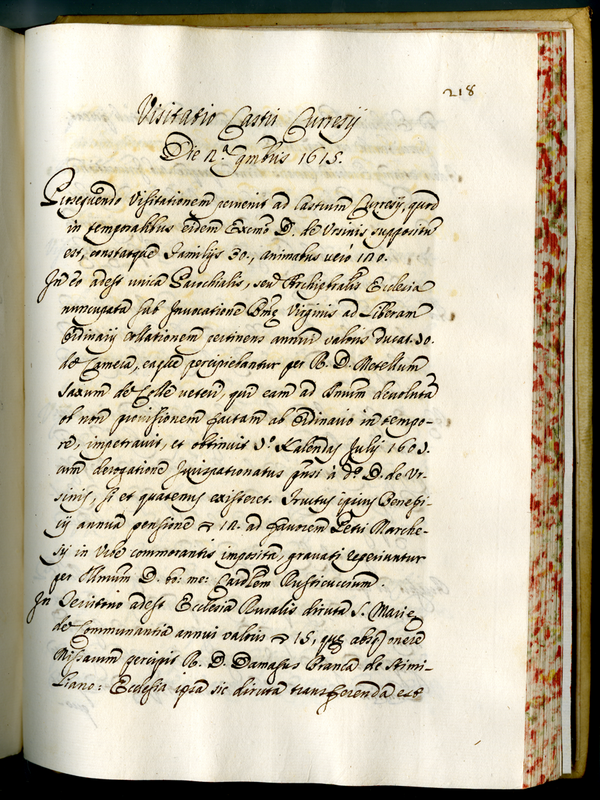 218
Visitatio Castri Curresij
Die 12.ª 9mbris 1615.
Proseguendo Visitationem pervenit ad Castrum Curresij, quod
in temporalibus eidem Excmo D. de Ursinis suppositũ
est, constatque Familijs 30., animabus verò 120.
In eo adest unica Parochialis, seu Archiptralis Ecclesia
nuncupata sub Invocatione Bmę Virginis ad Liberam
Ordinarij Collationem pertinens annui valoris ducat. 30.
de Camera, eaque percipiebantur per R. D. Metellum
Saxum de Colle veteri, qui eam ad Smum devolutã
ob non provisionem factam ab Ordinario in tempo-
re, impetravit, et obtinuit 3.º Kalendas Julij 1603.
cum derogatione Jurispatronatus pnsi à dº D. de Ur-
sinis, si et quatenus existeret. Fructus ipsius Benefi-
ij annua pensione 12. ad favorem Petri Marche-
sij in Urbe commorantis imposita, gravati reperiuntur
per Illmum D. bo: me: Cardlem Rusticuccium.
In Territorio adest Ecclesia Ruralis diruta S. Marię
de Communantia annui valoris 15, quę absq onere
Missarum percipit R. D. Damasus Branca de Stimi-
liano: Ecclesia ipsa sic diruta transferenda est